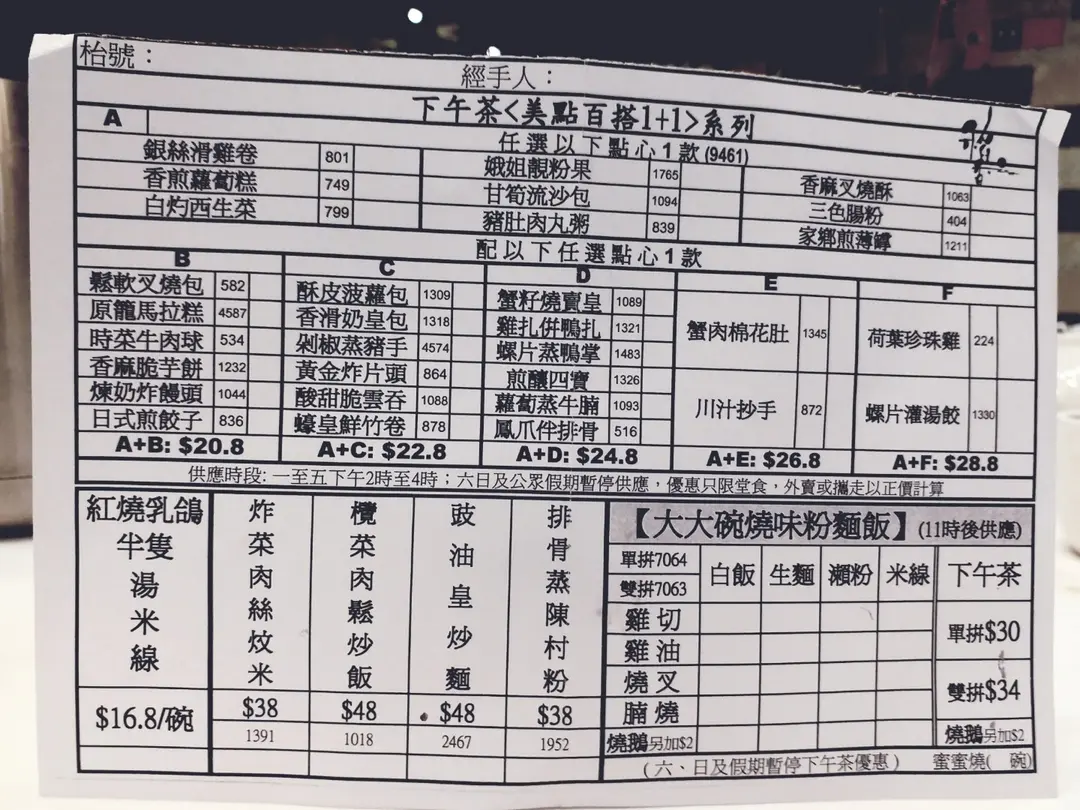 枱號：
經手人：
下午茶<美點百搭1+1>系列
A 任選以下點心1款(9461)
銀絲滑雞卷 801 娥姐靚粉果 1765 香麻叉燒酥 1063
香煎蘿蔔糕 749 甘筍流沙包 1094 三色腸粉 404
白灼西生菜 799 豬肚肉丸粥 839 家鄉煎薄罉 1211
配以下任選點心1款
B C D E F
鬆軟叉燒包 582 酥皮菠蘿包 1309 蟹籽燒賣皇 1089
原籠馬拉糕 4587 香滑奶皇包 1318 雞扎併鴨扎 1321 蟹肉棉花肚 1345 荷葉珍珠雞 224
時菜牛肉球 534 剁椒蒸豬手 4574 螺片蒸鴨掌 1483
香麻脆芋餅 1232 黃金炸片頭 864 煎釀四寶 1326
煉奶炸饅頭 1044 酸甜脆雲吞 1088 蘿蔔蒸牛腩 1093 川汁抄手 872 螺片灌湯餃 1330
日式煎餃子 836 蠔皇鮮竹卷 878 鳳爪伴排骨 516
A+B: $20.8 A+C: $22.8 A+D: $24.8 A+E: $26.8 A+F: $28.8
供應時段: 一至五下午2時至4時；六日及公眾假期暫停供應，優惠只限堂食，外賣或攜走以正價計算
紅燒乳鴿
半隻
湯
米
線
$16.8/碗
炸菜肉絲炆米
$38
1391
欖菜肉鬆炒飯
$48
1018
豉油皇炒麵
$48
2467
排骨蒸陳村粉
$38
1952
【大大碗燒味粉麵飯】(11時後供應)
單拚7064
雙拚7063
白飯 生麵 瀨粉 米線 下午茶
雞切
雞油
燒叉
腩燒
燒鵝另加$2
單拚$30
雙拚$34
燒鵝另加$2
(六、日及假期暫停下午茶優惠) 蜜蜜燒( 碗)